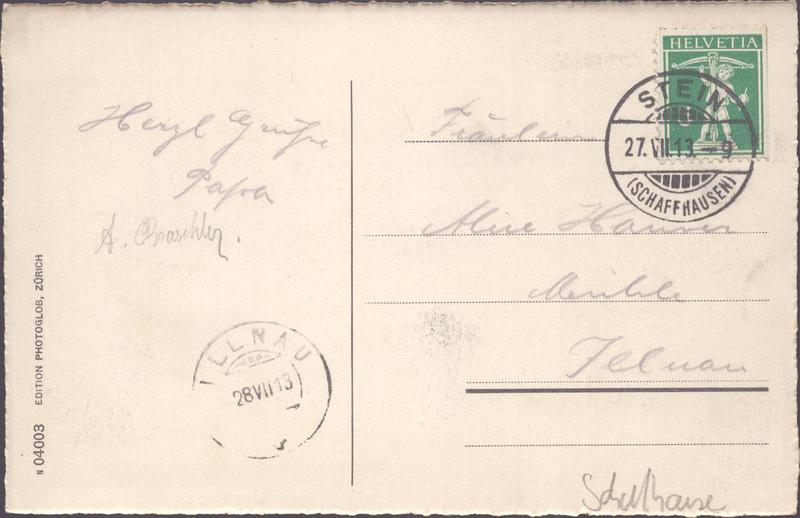 HELVETIA
STEIN
27.VII.13.-9
(SCHAFFHAUSEN)
Herzl Grüße
Papa
A. Braschler.
Fräulein
Alice Hauser
Mühle
Illnau
ILLNAU
28 VII 13
N 04003 EDITION PHOTOGLOB, ZÜRICH